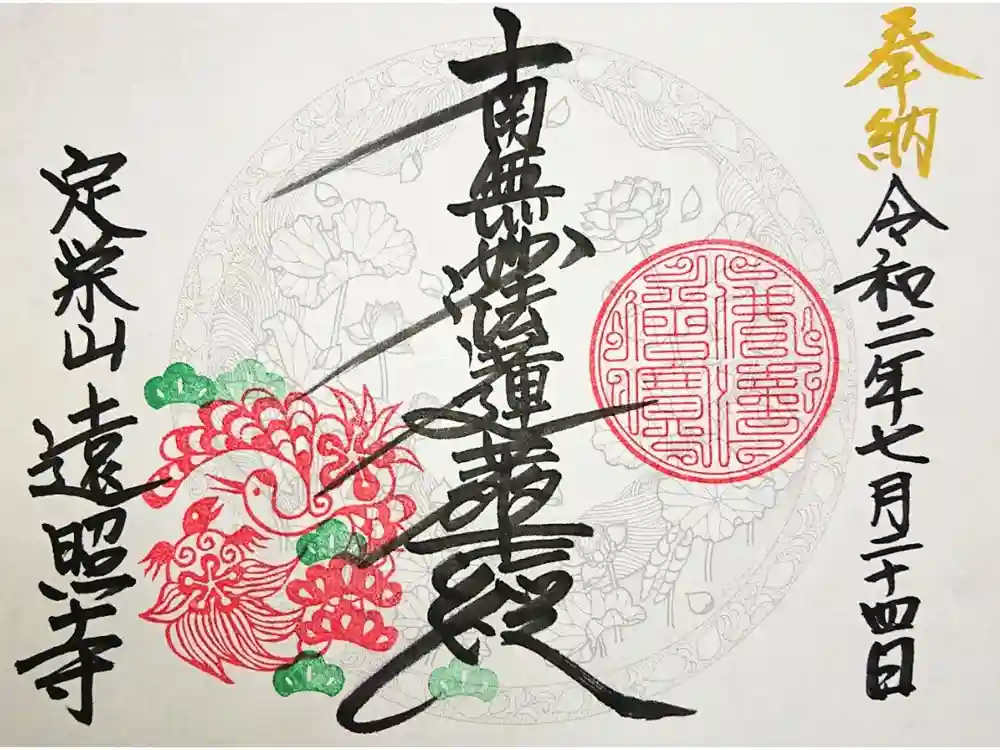 奉納
令和二年七月二十四日
南無妙法蓮華経
定栄山 遠照寺